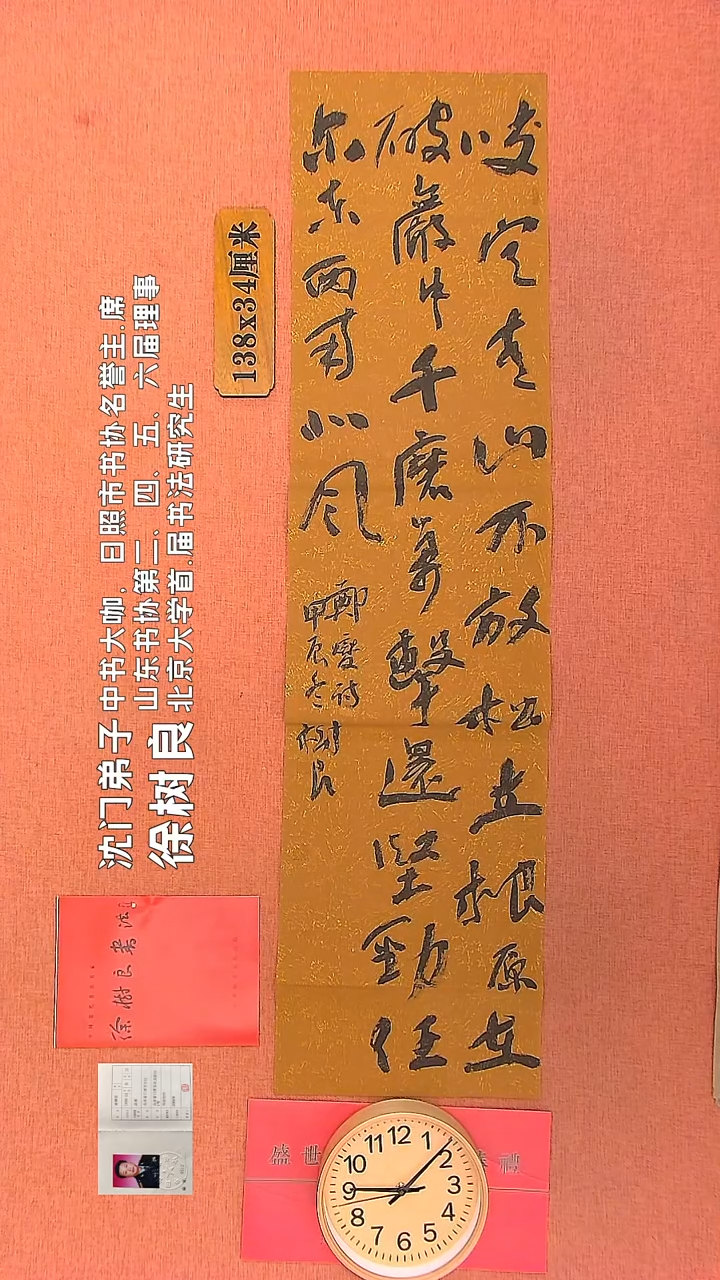 咬定青山不放松立根原在
破巖中千磨萬擊還堅勁任
尔东西南北风
鄭燮詩
甲辰冬樹良
138x34厘米
沈门弟子 中书大咖，日照市书协名誉主.席
山东书协第三、四、五、六届理事
徐树良 北京大学首.届书法研究生
徐樹良书法
盛世 禮
12
1
2
3
4
5
6
7
8
9
10
11